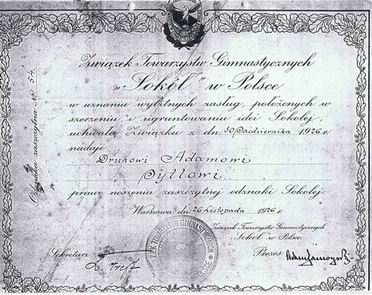 Związek Towarzystw Gimnastycznych
„Sokół” w Polsce
w uznaniu wybitnych zasług, położonych w
szerzeniu i ugruntowaniu idei Sokolej
uchwałą Związku z dn. 30 Października 1926 r.
nadaje
Druhowi Adamowi
prawo noszenia zaszczytnej odznaki Sokolej.
Warszawa, dn. 26 Listopada 1926 r.
Związek Towarzystw Gimnastycznych
Sokół w Polsce.
Sekretarz
Prezes